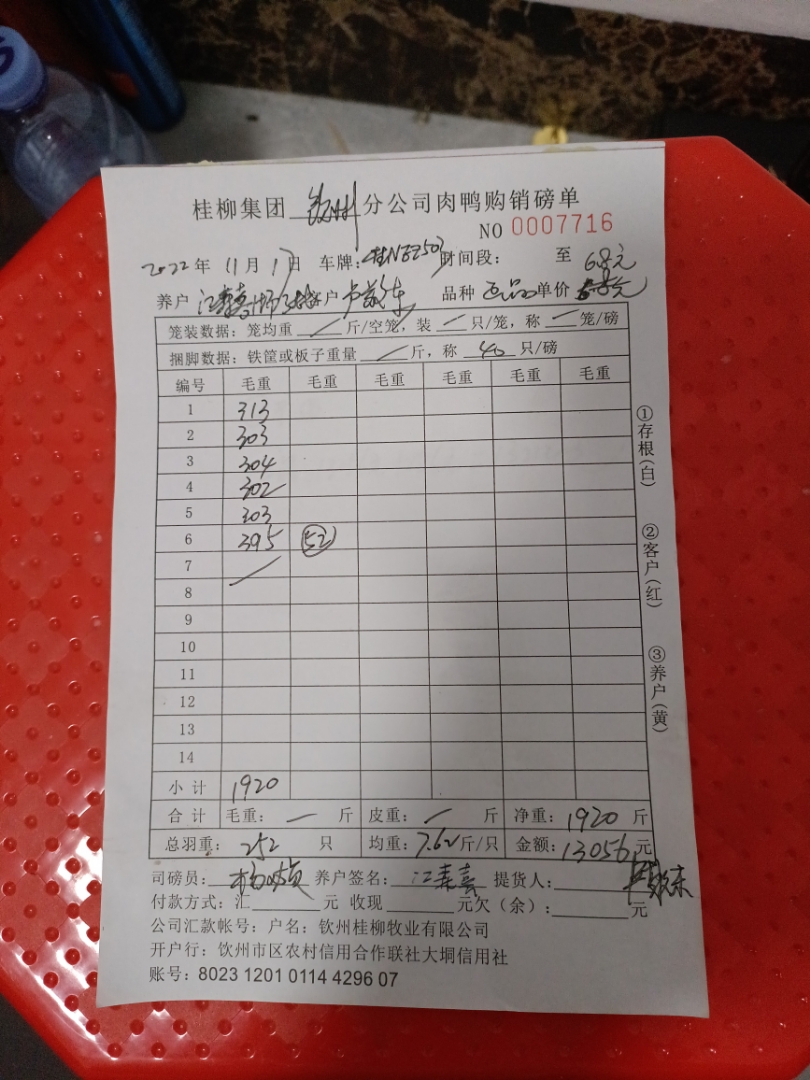 桂柳集团 钦州 分公司肉鸭购销磅单
NO 0007716
2022年 11月 17日 车牌: 桂NE250 时间段: 至 6.8元
养户 江寿喜 客户 品种 正品 单价
笼装数据: 笼均重 / 斤/空笼, 装 / 只/笼, 称 / 笼/磅
捆脚数据: 铁筐或板子重量 / 斤, 称 40 只/磅
编号 毛重 毛重 毛重 毛重 毛重 毛重
1 313
2 303
3 304
4 302
5 303
6 395 52
7
8
9
10
11
12
13
14
小计 1920
合计 毛重: 一 斤 皮重: / 斤 净重: 1920 斤
总羽重: 252 只 均重: 7.62 斤/只 金额: 13056 元
司磅员: 养户签名: 江寿喜 提货人:
付款方式: 汇 元 收现 元欠(余): 元
公司汇款帐号: 户名: 钦州桂柳牧业有限公司
开户行: 钦州市区农村信用合作联社大垌信用社
账号: 8023 1201 0114 4296 07
①存根(白)
②客户(红)
③养户(黄)